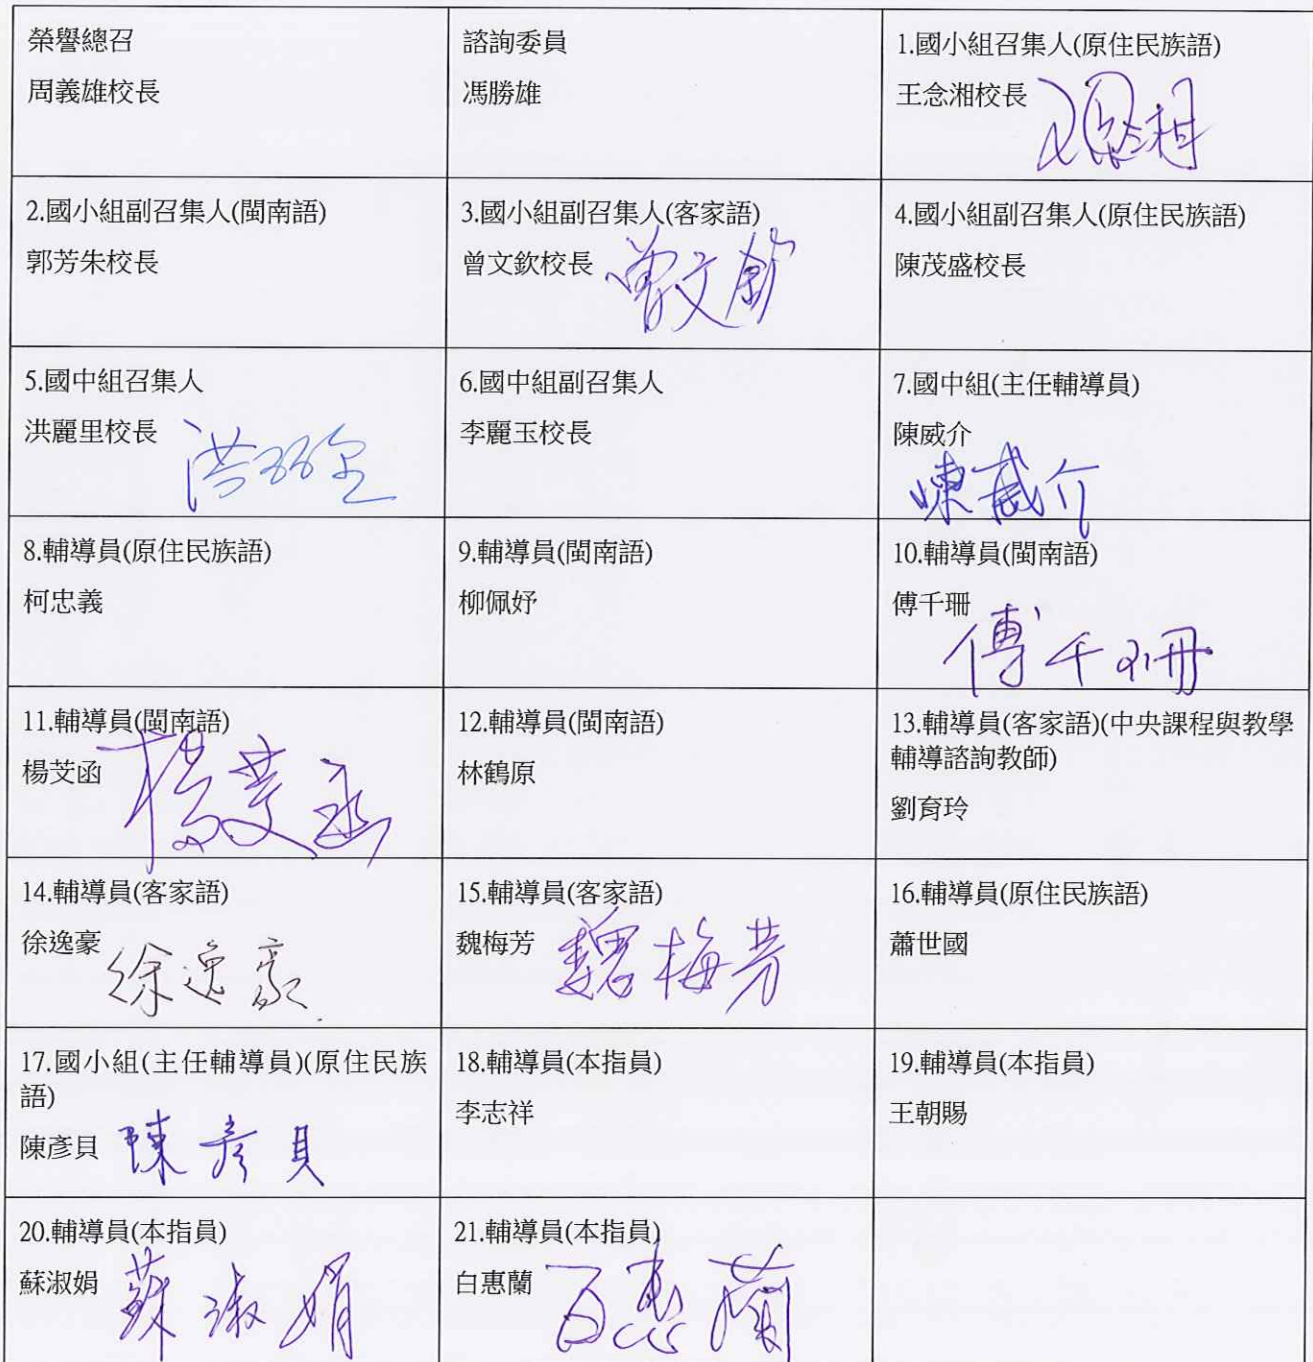 榮譽總召
周義雄校長
諮詢委員
馮勝雄
1.國小組召集人(原住民族語)
王念湘校長
2.國小組副召集人(閩南語)
郭芳朱校長
3.國小組副召集人(客家語)
曾文欽校長
曾文欽
4.國小組副召集人(原住民族語)
陳茂盛校長
5.國中組召集人
洪麗里校長
6.國中組副召集人
李麗玉校長
7.國中組(主任輔導員)
陳威介
陳威介
8.輔導員(原住民族語)
柯忠義
9.輔導員(閩南語)
柳佩妤
10.輔導員(閩南語)
傅千珊
傅千珊
11.輔導員(閩南語)
楊芠函
楊芠函
12.輔導員(閩南語)
林鶴原
13.輔導員(客家語)(中央課程與教學
輔導諮詢教師)
劉育玲
14.輔導員(客家語)
徐逸豪
徐逸豪
15.輔導員(客家語)
魏梅芳
魏梅芳
16.輔導員(原住民族語)
蕭世國
17.國小組(主任輔導員)(原住民族
語)
陳彥貝
陳彥貝
18.輔導員(本指員)
李志祥
19.輔導員(本指員)
王朝賜
20.輔導員(本指員)
蘇淑娟
蘇淑娟
21.輔導員(本指員)
白惠蘭
白惠蘭